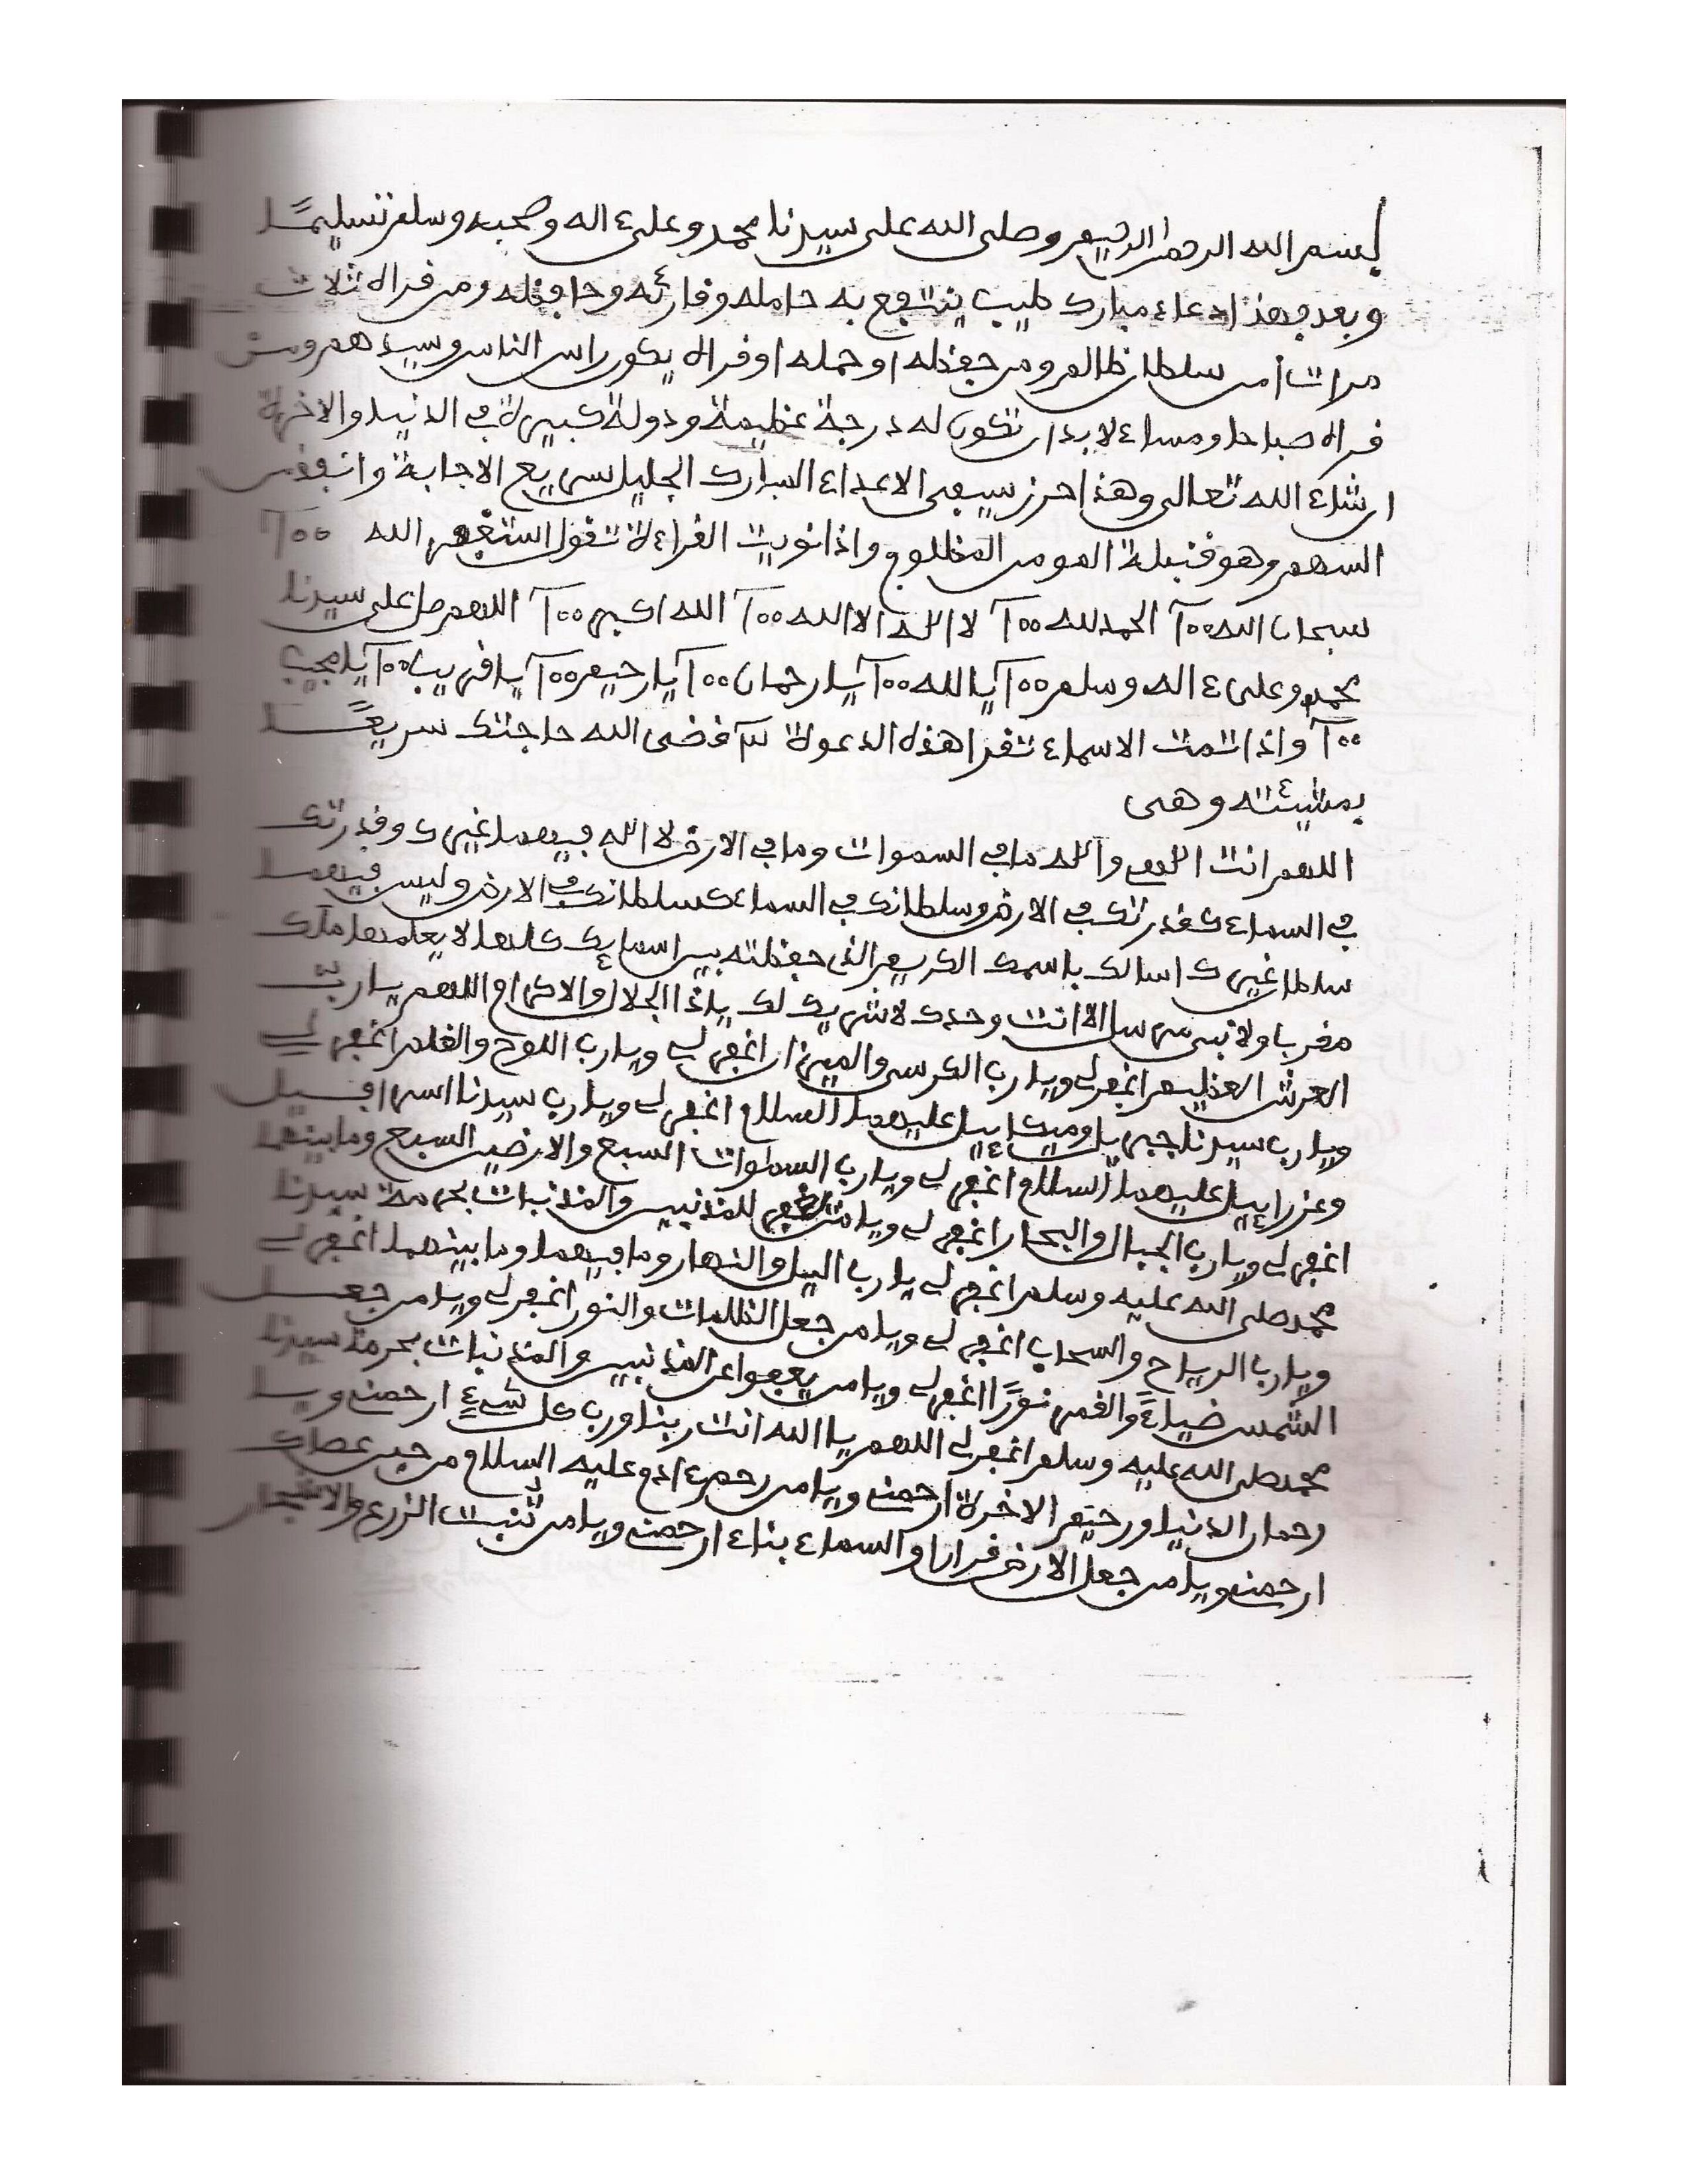 بسم الله الرحمن الرحيم وصلى الله على سيدنا محمد وعلى ءاله وصحبه وسلم تسليما
وبعد فهذا دعاء مبارك طيب ينتفع به حامله وقارئه وحافظه ومن قراه ثلاث
مرات امن سلطان ظالم ومن حفظه او حمله او قراه يكون راس الناس وسيدهم ومن
قراه صباحا ومساء لابد ان تكون له درجة عظيمة ودولة كبيرة في الدنيا والاخرة
ان شاء الله تعالى وهذا حرز سيفى الاعداء المبارك الجليل سريع الاجابة وانفذ من
السهم وهو قنبلة المومن المظلوم واذا نويت القراءة تقول استغفر الله ١٠٠
سبحان الله ١٠٠ الحمد لله ١٠٠ لا اله الا الله ١٠٠ الله اكبر ١٠٠ اللهم صل على سيدنا
محمد وعلى ءاله وسلم ١٠٠ يا الله ١٠٠ يا رحمان ١٠٠ يا رحيم ١٠٠ يا قريب ١٠٠ يا مجيب
١٠٠ واذا تمت الاسماء تقرا هذه الدعوة ٣ قضى الله حاجتك سريعا
بمشيئته وهى
اللهم انت اله من في واله ما في السموات وما في الارض لا اله فيهما غيرك وقدرتك
في السماء كقدرتك في الارض وسلطانك في السماء كسلطانك في الارض وليس فيهما
سلطا غيرك اسالك باسمك الكريم الذى حفظته بين اسمائك كلها لا يعلمها ملك
مقرب ولا نبى مرسل الا انت وحدك لا شريك لك ياذا الجلال والاكرام اللهم يارب
العرش العظيم اغفر لي ويارب الكرسى والميزان اغفر لي ويارب اللوح والقلم اغفر لي
ويارب سيدنا جبريل وميكاءيل عليهما السلام اغفر لي ويارب سيدنا اسرافيل
وعزراءيل عليهما السلام اغفر لي ويارب السموات السبع والارضين السبع وما بينهما
اغفر لي ويارب الجبال والبحار اغفر لي ويا من يغفر للمذنبين والمذنبات بحرمة سيدنا
محمد صلى الله عليه وسلم اغفر لي يارب اليل والنهار وما فيهما وما بينهما اغفر لي
ويارب الرياح والسحاب اغفر لي ويا من جعل الظلمات والنور اغفر لي ويا من جعل
الشمس ضياء والقمر نورا اغفر لي ويا من يعفوا عن المذنبين والمذنبات بحرمة سيدنا
محمد صلى الله عليه وسلم اغفر لي اللهم يا الله انت ربنا ورب كل شيء ارحمني ويا
رحمان الدنيا ورحيم الاخرة ارحمني ويا من رحم ءادم عليه السلام من حين عصاك
ارحمني ويا من جعل الارض قرارا والسماء بناء ارحمني ويا من تنبت الزرع والاشجار